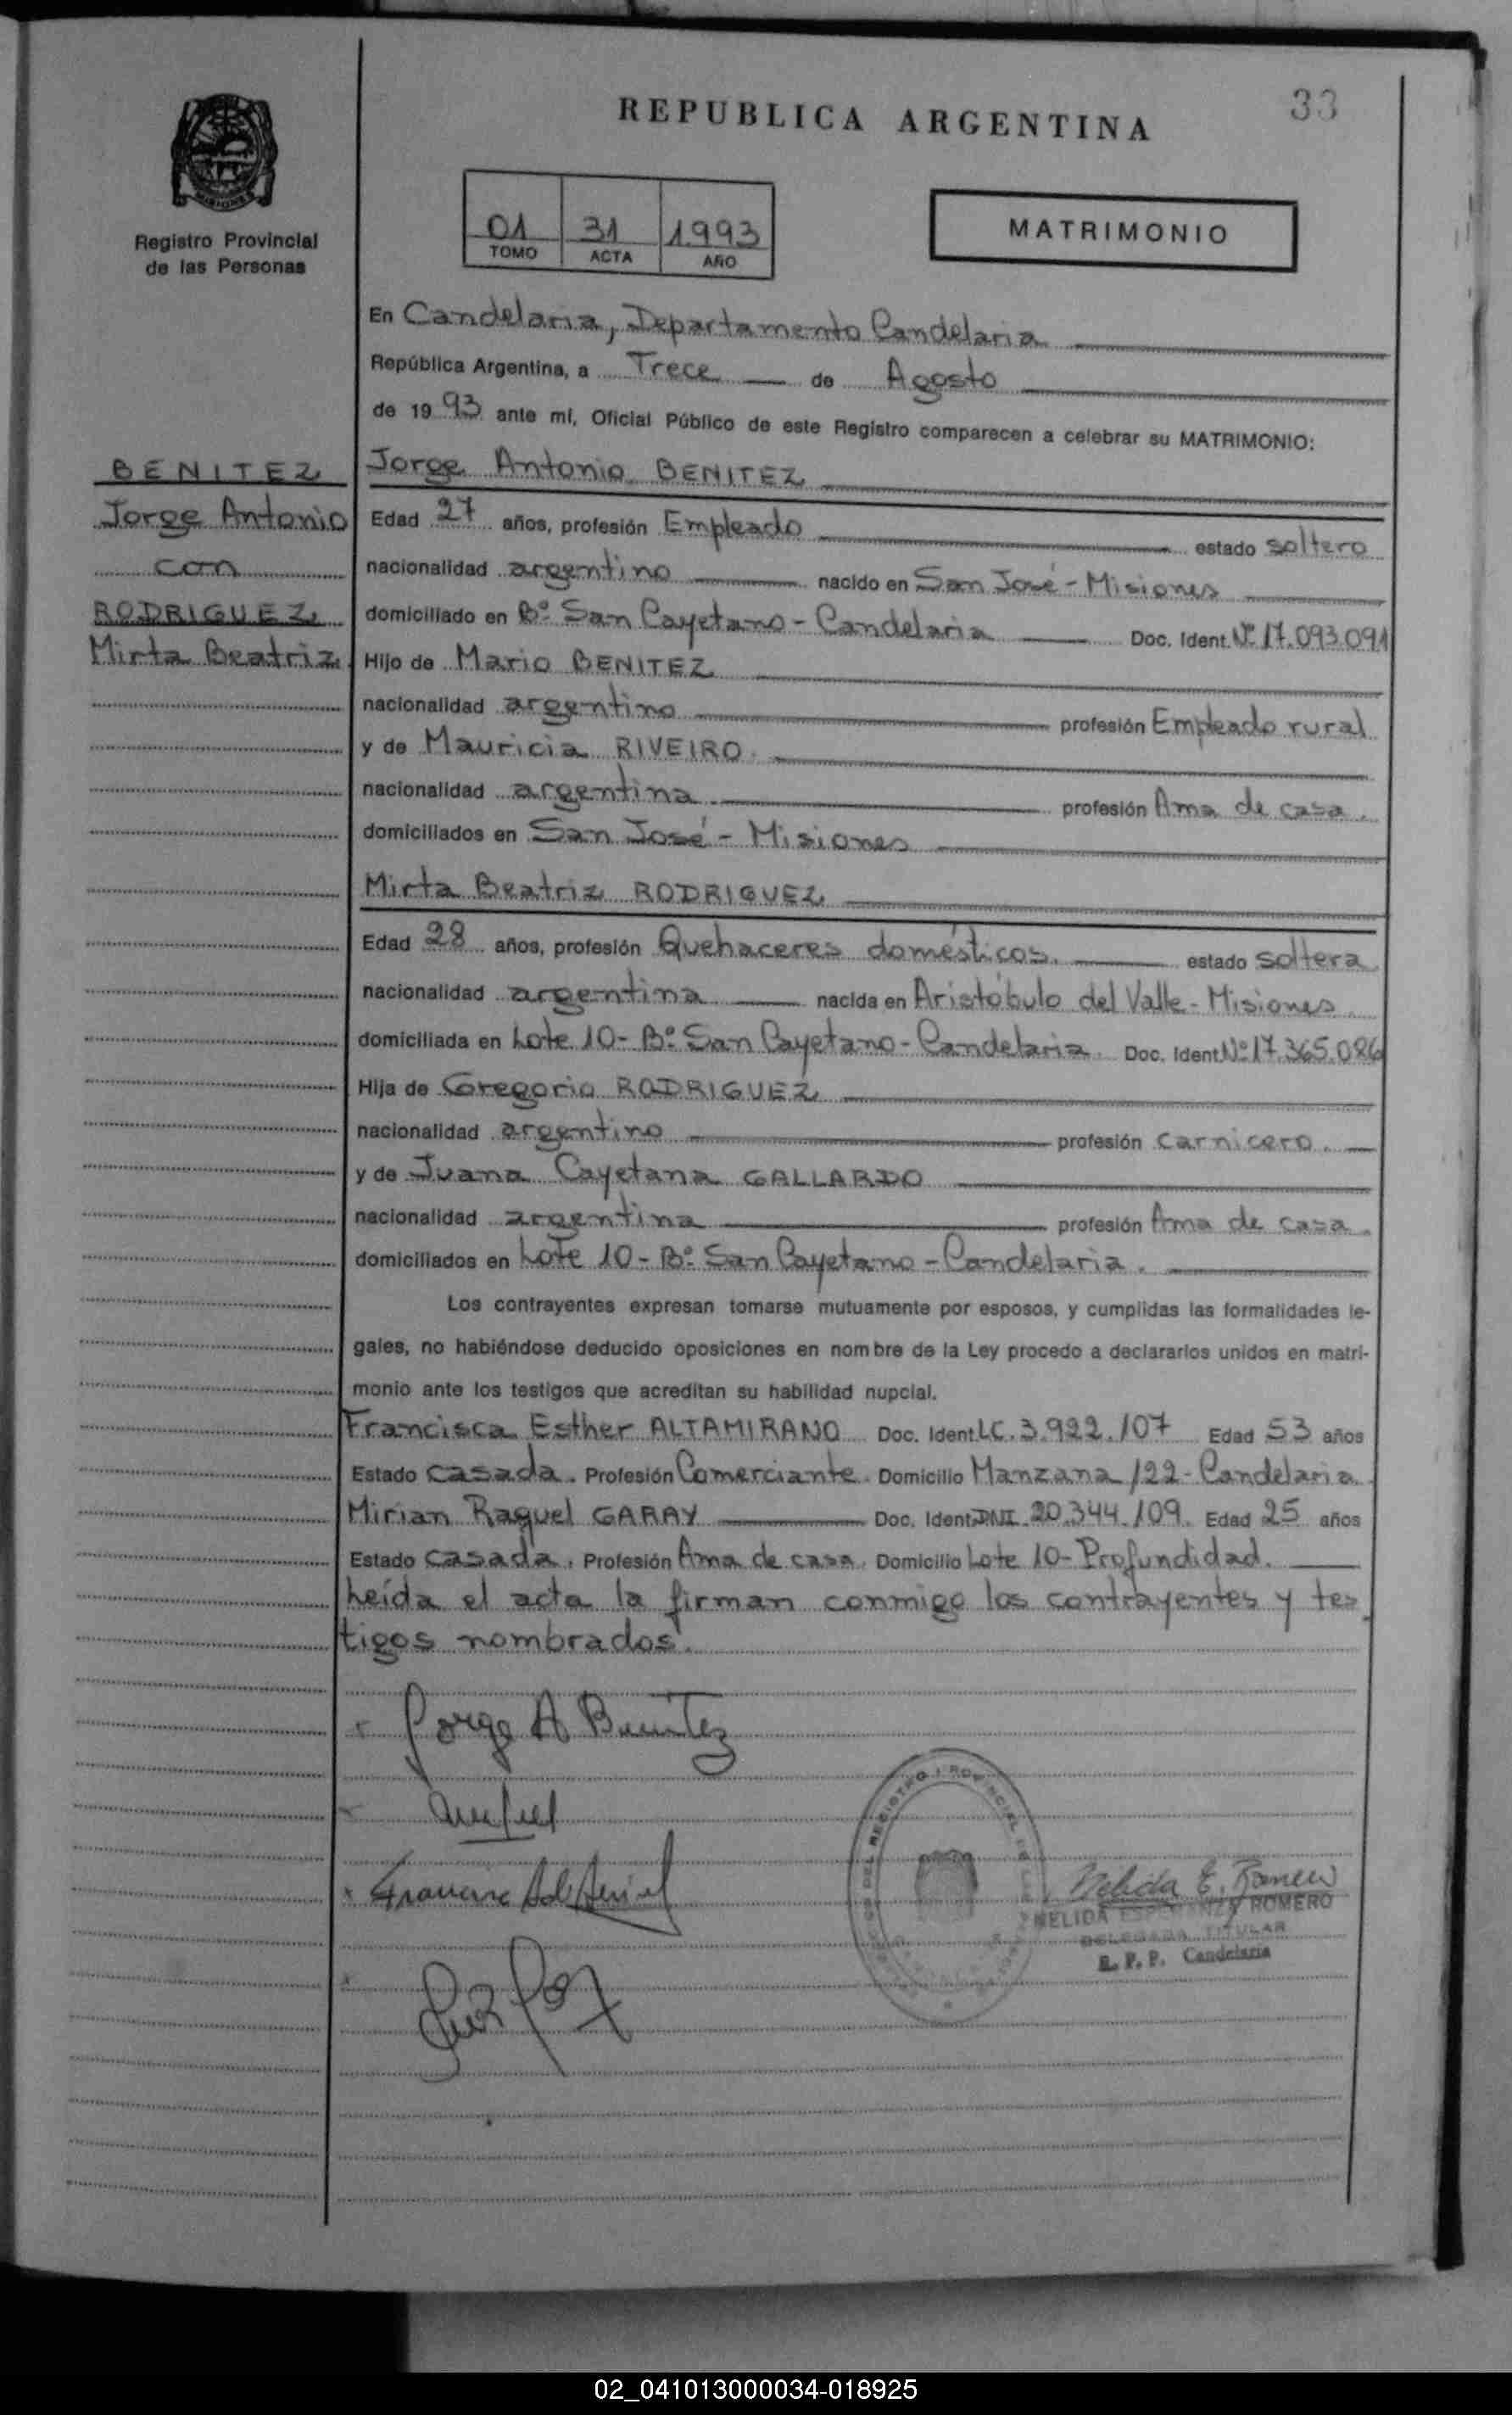 33
REPUBLICA ARGENTINA
MISIONES
Registro Provincial
de las Personas
01 31 1993
TOMO ACTA AÑO
MATRIMONIO
En Candelaria, Departamento Candelaria
República Argentina, a Trece de Agosto
de 19 93 ante mí, Oficial Público de este Registro comparecen a celebrar su MATRIMONIO:
BENITEZ
Jorge Antonio
con
RODRIGUEZ
Mirta Beatriz
Jorge Antonio BENITEZ
Edad 27 años, profesión Empleado estado soltero
nacionalidad argentino nacido en San José - Misiones
domiciliado en Bº San Cayetano - Candelaria Doc. Ident. Nº 17.093.091
Hijo de Mario BENITEZ
nacionalidad argentino profesión Empleado rural
y de Mauricia RIVEIRO
nacionalidad argentina profesión Ama de casa.
domiciliados en San José - Misiones
Mirta Beatriz RODRIGUEZ
Edad 28 años, profesión Quehaceres domésticos. estado soltera
nacionalidad argentina nacida en Aristóbulo del Valle - Misiones
domiciliada en Lote 10 - Bº San Cayetano - Candelaria. Doc. Ident. Nº 17.365.086
Hija de Gregorio RODRIGUEZ
nacionalidad argentino profesión carnicero.
y de Juana Cayetana GALLARDO
nacionalidad argentina profesión Ama de casa.
domiciliados en Lote 10 - Bº San Cayetano - Candelaria.
Los contrayentes expresan tomarse mutuamente por esposos, y cumplidas las formalidades le-
gales, no habiéndose deducido oposiciones en nombre de la Ley procedo a declararlos unidos en matri-
monio ante los testigos que acreditan su habilidad nupcial.
Francisca Esther ALTAMIRANO Doc. Ident. LC. 3.922.107 Edad 53 años
Estado casada. Profesión Comerciante. Domicilio Manzana 122 - Candelaria.
Mirian Raquel GARAY Doc. Ident. DNI. 20.344.109. Edad 25 años
Estado casada. Profesión Ama de casa. Domicilio Lote 10 - Profundidad.
Leída el acta la firman conmigo los contrayentes y tes
tigos nombrados.
Jorge A Benitez
Nelida E. Romero
NELIDA ESPERANZA ROMERO
DELEGADA TITULAR
R. P. P. Candelaria
02_041013000034-018925